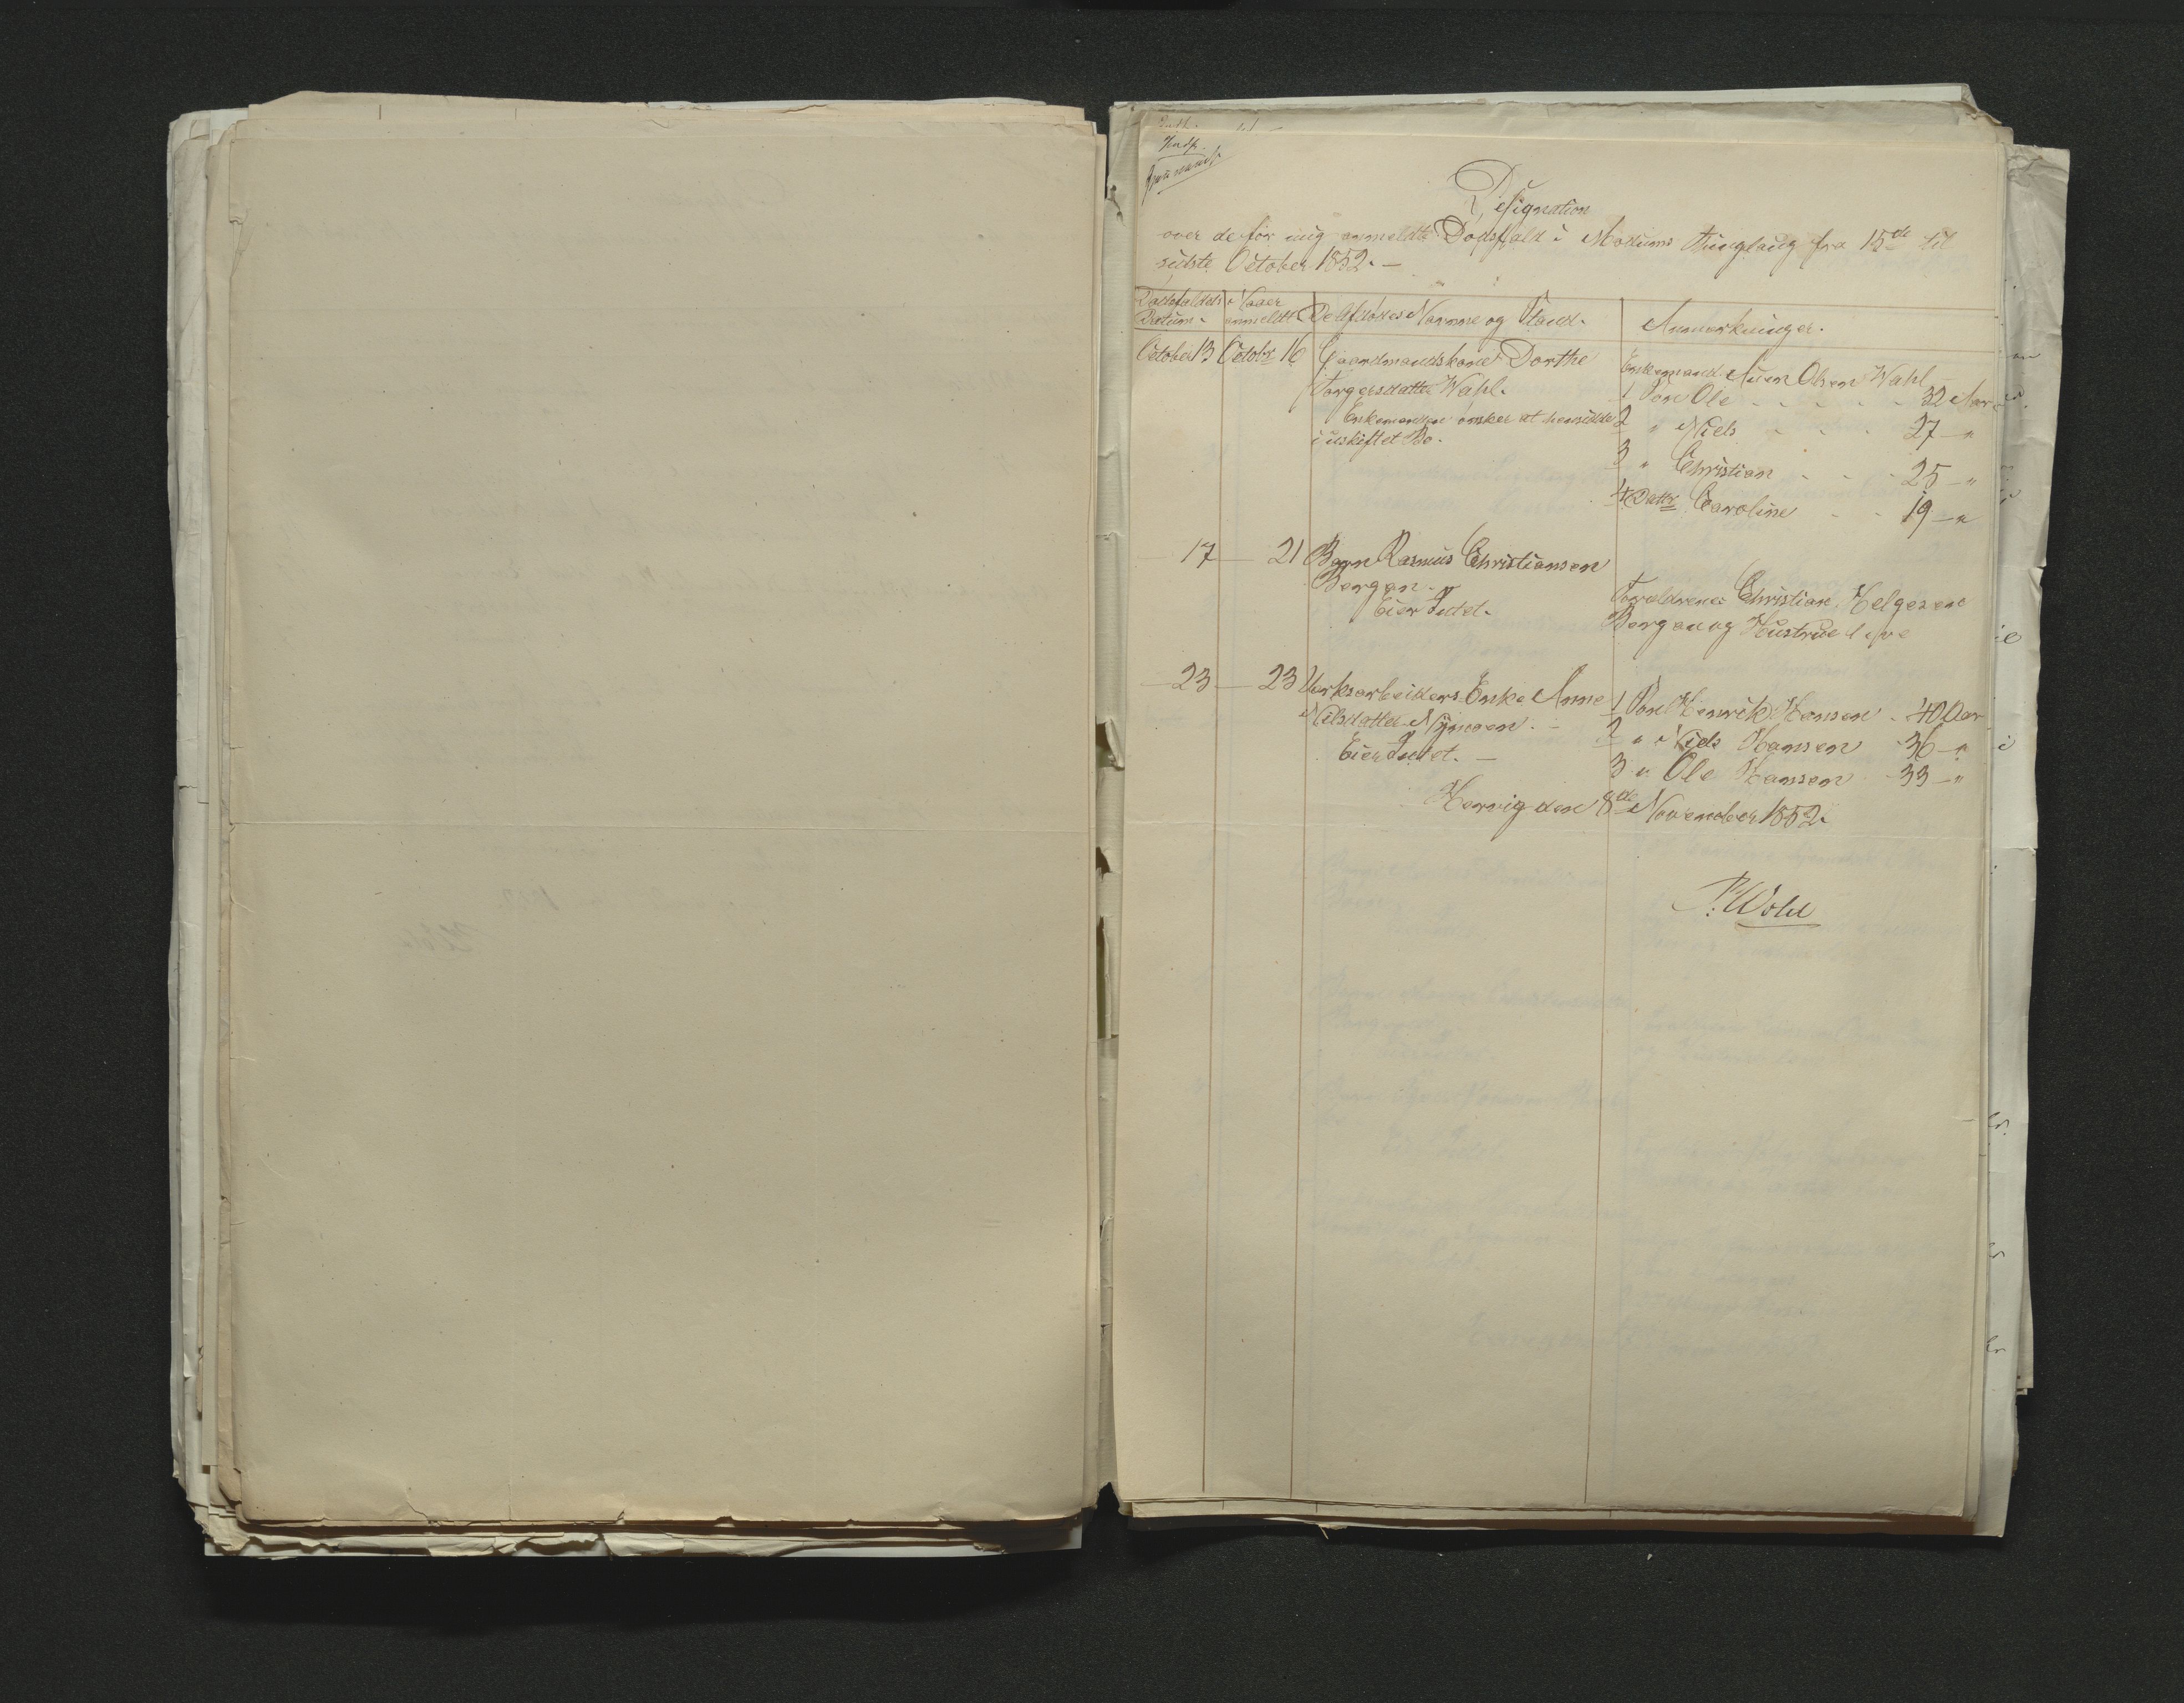 Designation
over de for mig anmeldte Dødsfald i Modums Thinglaug fra 15de til
sidste October 1852. —
Dødsfaldets Datum. Naar anmeldt. De Afdødes Navne og Stand. Anmærkninger.
October 13 Octobr 16 Gaardmandskone Dorthe
Torgersdatter Wahl.
Enkemanden ønsker at hensidde
i uskiftet Bo.
Enkemand Auen Olsen Wahl
1 Søn Ole - - - - - 32 Aar
2 " Niels - - - 27 — "
3 " Christian - - - 25 — "
4 Dattr Caroline - - 19 — "
— 17 — 21 Barn Rasmus Christiansen
Bergan.
Eier Intet.
Forældrene Christian Helgesen
Bergan og Hustrue leve
— 23 — 23 Værksarbeiders Enke Anne
Nilsdatter Nymoen. —
Eier Intet. —
1 Søn Henrik Hansen - 40 Aar
2 " Niels Hansen - 36 — "
3 " Ole Hansen - 33 — "
Hervig den 8de November 1852.
P. Wold